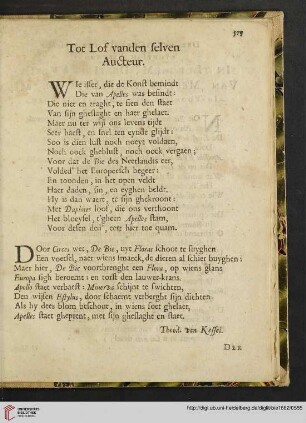 377
Tot Lof vanden selven
Aucteur.
Wie isser, die de Konst bemindt
Die van Apelles was besindt:
Die niet en traght, te sien den staet
Van sijn gheslaght en haer ghelaet.
Maer nu ter wijl ons levens tijdt
Seer haest, en snel ten eynde glijdt:
Soo is dien lust noch noeyt voldaen,
Noch oock gheblust, noch oock vergaen;
Voor dat de Bie des Nerlandts eer,
Volded' het Europeesch begeer:
En toonden, in het open veldt
Haer daden, sin, en eyghen beldt.
Hy is dan waert, te sijn ghekroont:
Met Daphnes loof, die ons verthoont
Het bloeysel, t'gheen Apelles stam,
Voor desen doit, tot haer toe quam.
Door Ceres wet, De Bie, uyt Floras schoot te suyghen
Een voetsel, naer wiens smaeck, de dieren al schier buyghen:
Maer hier, De Bie voortbrenght een Flora, op wiens glans
Europa sigh beroemt: en torst den lauwer-krans.
Apollo staet verbaest: Minerva schijnt te swichten,
Den wijsen Esculus, door schaemt verberght sijn dichten:
Als hy dees blom beschout, in wiens soet ghelaet,
Apelles staet gheprent, met sijn gheslaght en staet.
Theod. van Kessel.
Der
http://digi.ub.uni-heidelberg.de/diglit/bie1662/0585